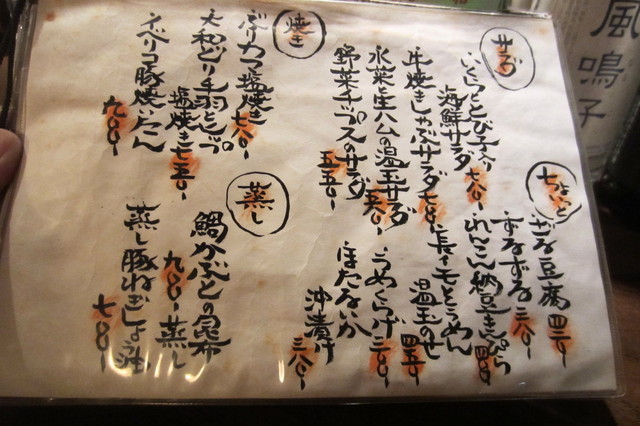 サラダ
いくらとび子入り
海鮮サラダ 七八〇
牛焼きしゃぶサラダ 七八〇
水菜と生ハムの温玉サラダ
野菜チップスのサラダ 五五〇
焼き
ぶりカマ塩焼き 七八〇
大和どり手羽とヒップ
塩焼き 七五〇
イベリコ豚焼いたん
九八〇
ちょいと
ざる豆腐
ずるずる 三八〇
れんこん納豆きんぴら
長イモとうめん
温玉のせ
うめくらげ 三八〇
ほたるいか
沖漬け 三八〇
蒸し
鯛かぶとの昆布
蒸し 九八〇
蒸し豚ねぎしょう油
七八〇
風鳴子